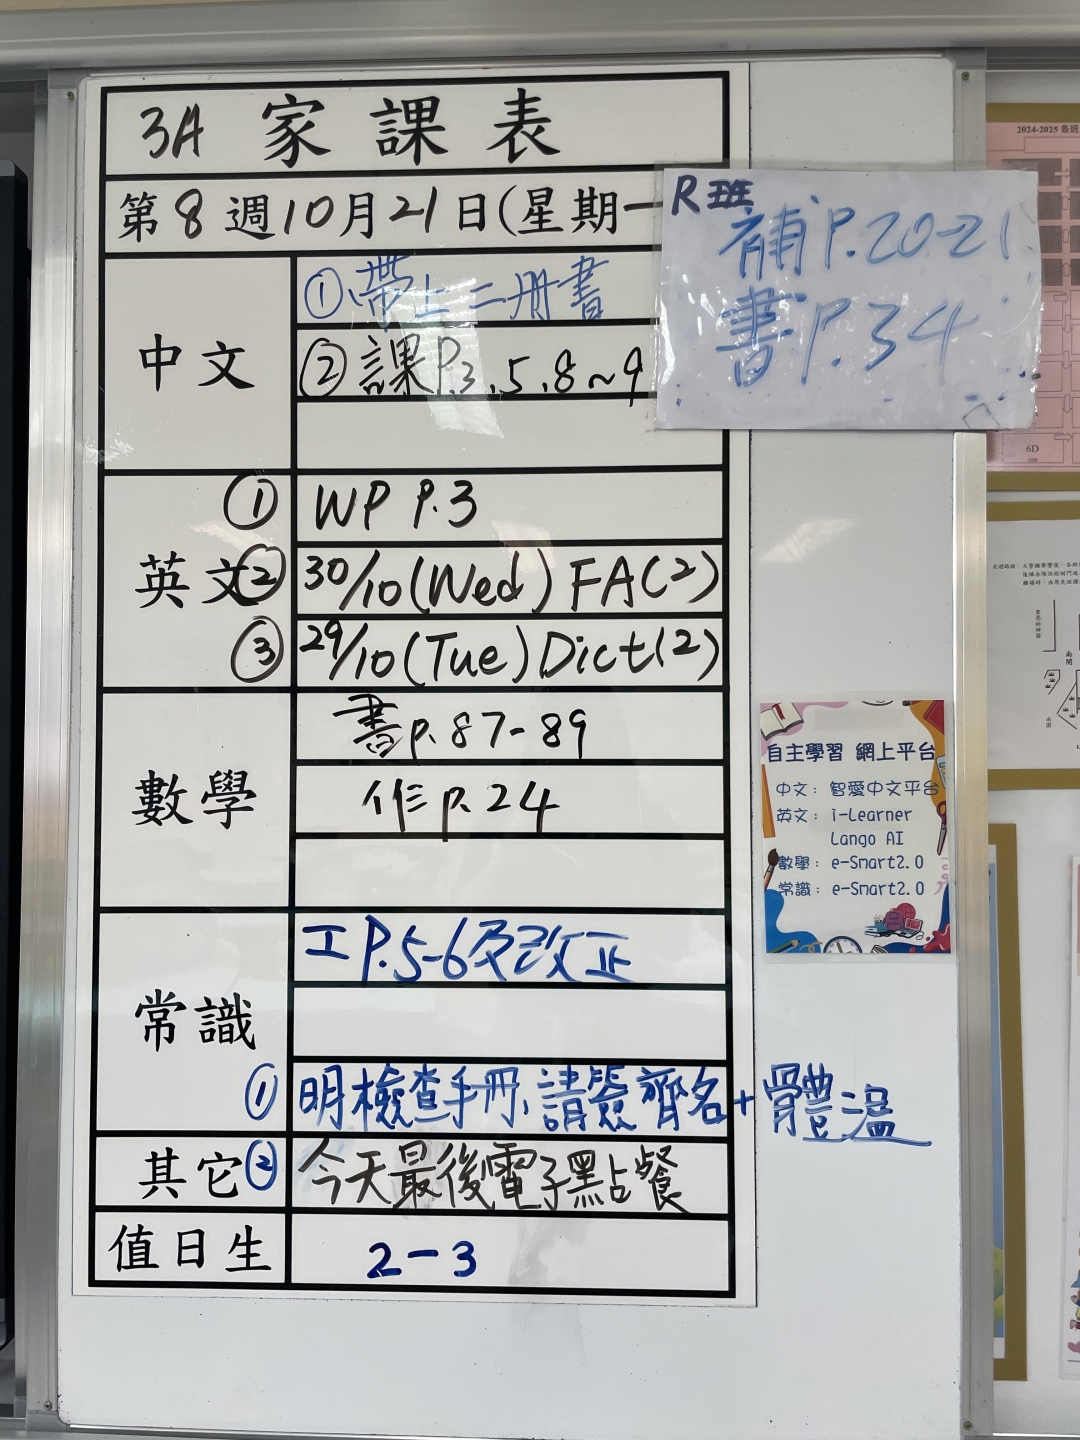 3A 家課表
第8週10月21日(星期一
R班
補P.20-21
書P.34
中文
①帶上二冊書
②課P.3、5、8~9
英文
① WP P.3
② 30/10(Wed) FA(2)
③ 29/10(Tue) Dict(2)
數學
書p.87-89
作p.24
常識
工P.5-6及改正
其它
① 明檢查手冊、請簽齊名+體溫
② 今天最後電子點餐
值日生
2-3
自主學習 網上平台
中文: 智愛中文平台
英文: i-Learner
Lango AI
數學: e-Smart2.0
常識: e-Smart2.0
2024-2025 各班
6D